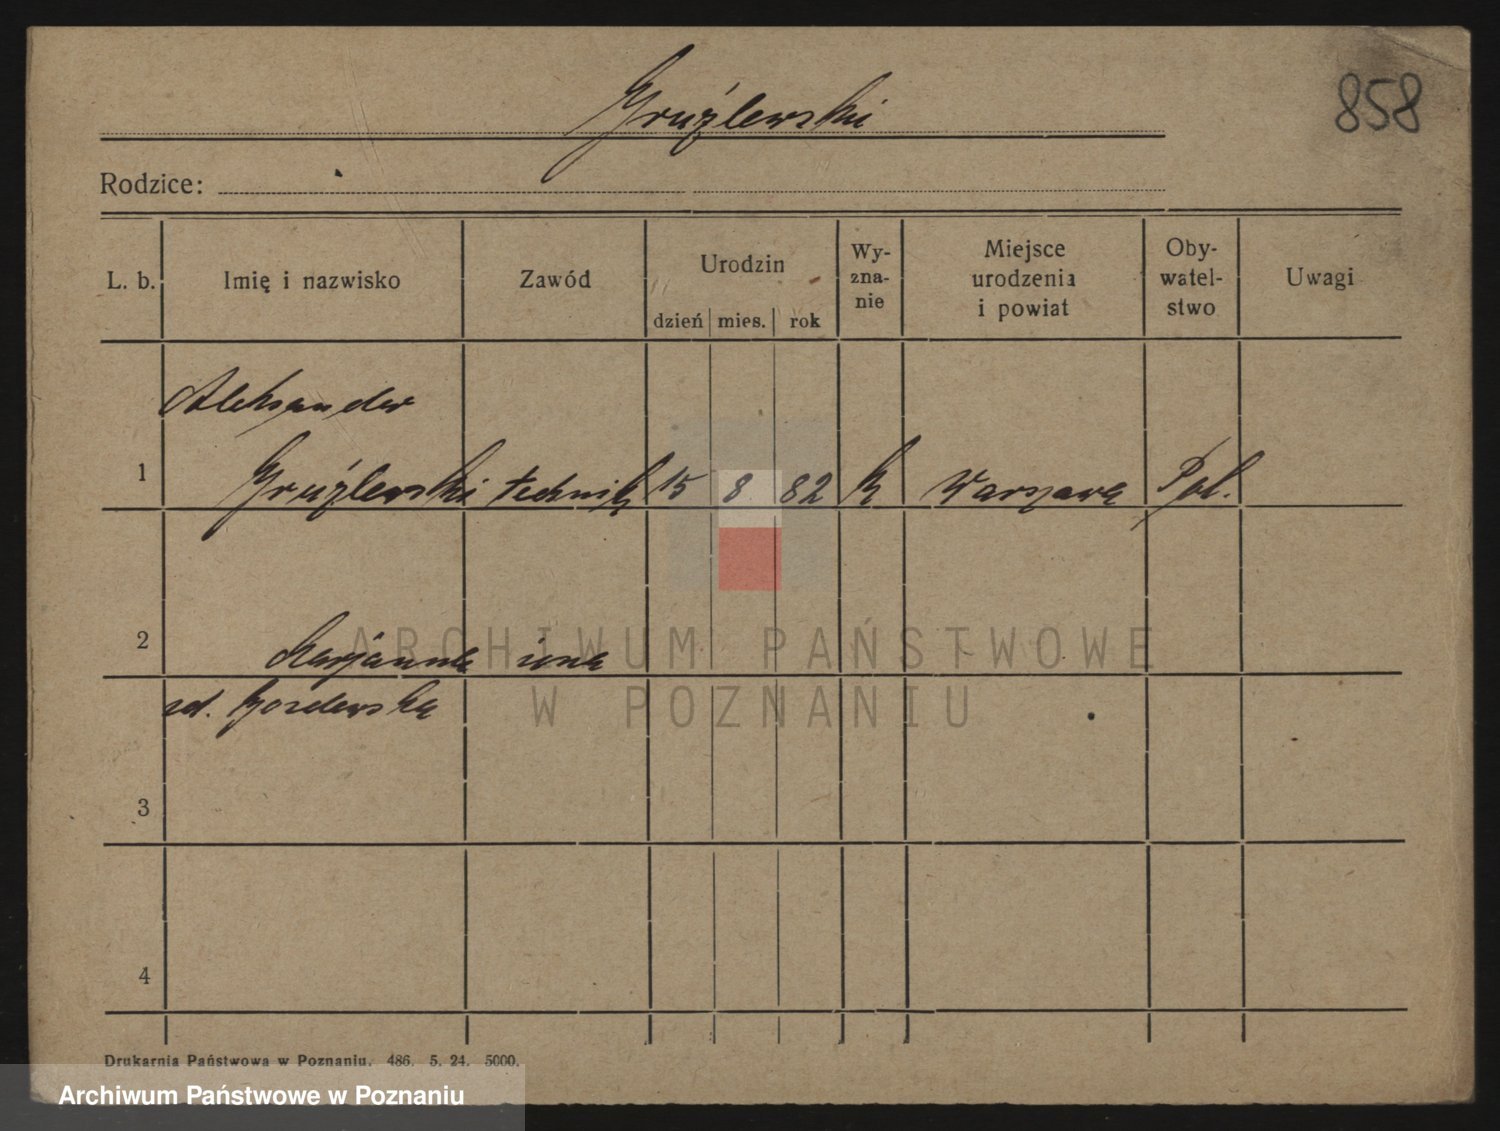 Gruźlewski
858
Rodzice:
L. b. Imię i nazwisko Zawód Urodzin dzień mies. rok Wy-zna-nie Miejsce urodzenia i powiat Oby-watel-stwo Uwagi
Aleksander
1 Gruźlewski technik 15 8 82 k Warszawa Pol.
2 Marjanna żona
zd.
3
4
Drukarnia Państwowa w Poznaniu. 486. 5. 24. 5000.
ARCHIWUM PAŃSTWOWE
W POZNANIU
Archiwum Państwowe w Poznaniu